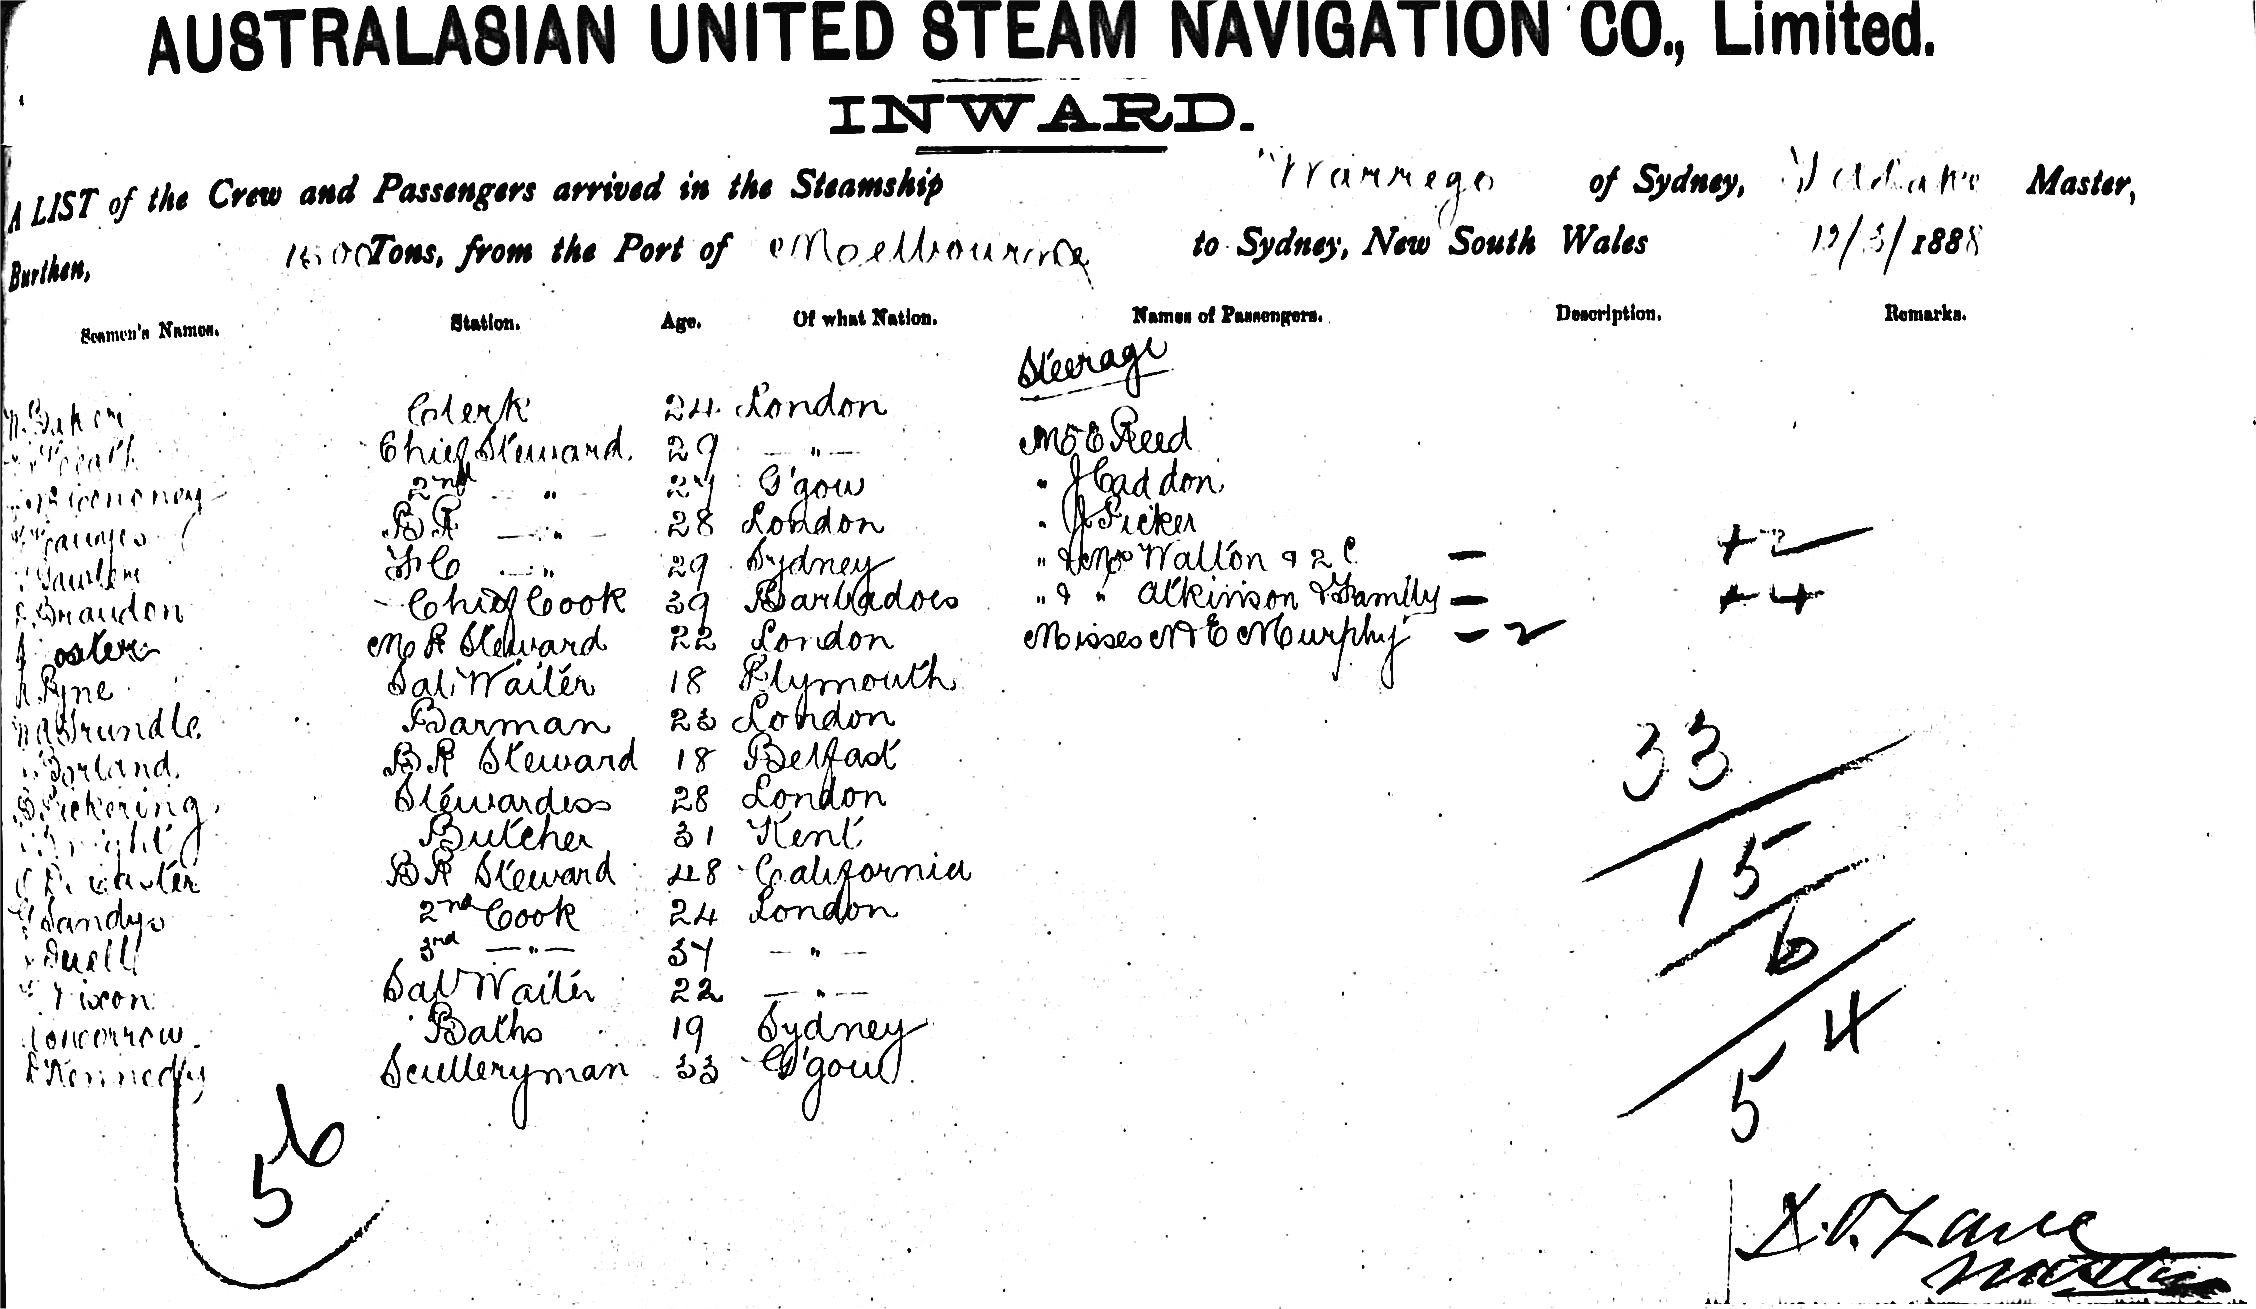 AUSTRALASIAN UNITED STEAM NAVIGATION CO., Limited.
INWARD.
A LIST of the Crew and Passengers arrived in the Steamship Warrego of Sydney, Master,
Burthen, 1500 Tons, from the Port of Moelbourne to Sydney, New South Wales 19/3/1888
Seamen's Names. Station. Age. Of what Nation. Names of Passengers. Description. Remarks.
Steerage
Baker Clerk 24 London
Chief Steward. 29 — " — Mr E Reed
2nd " 27 G'gow " J Caddon
BR — " — 28 London " J Picker
FC — " 29 Sydney " & Mrs Walton & 2 C — +2
Braudon Chief Cook 39 Barbadoes " & " Atkinson & Family — +4
oster M R Steward 22 London Misses A E Murphy — 2
Pyne Sal. Waiter 18 Plymouth
Trundle Barman 23 London
Borland. BR Steward 18 Belfast
Pickering Stewardess 28 London
Butcher 31 Kent
BR Steward 48 California
Sandys 2nd Cook 24 London
Duell 3rd — " — 37 — " —
Nixon Sal Waiter 22 — " —
Tomorrow Baths 19 Sydney
Kennedy Sculleryman 33 G'gow
33
15
6
54
56
D.T. Lane
Master